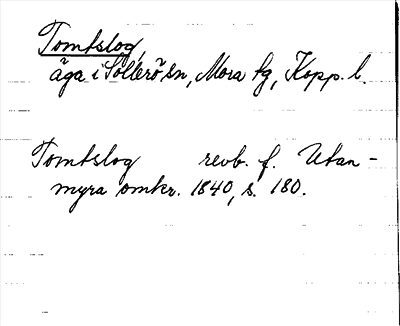 Tomtslog,
äga i Sollerö sn, Mora fg, Kopp. l.
Tomtslog revb. f. Utan-
myra omkr. 1840, s. 180.